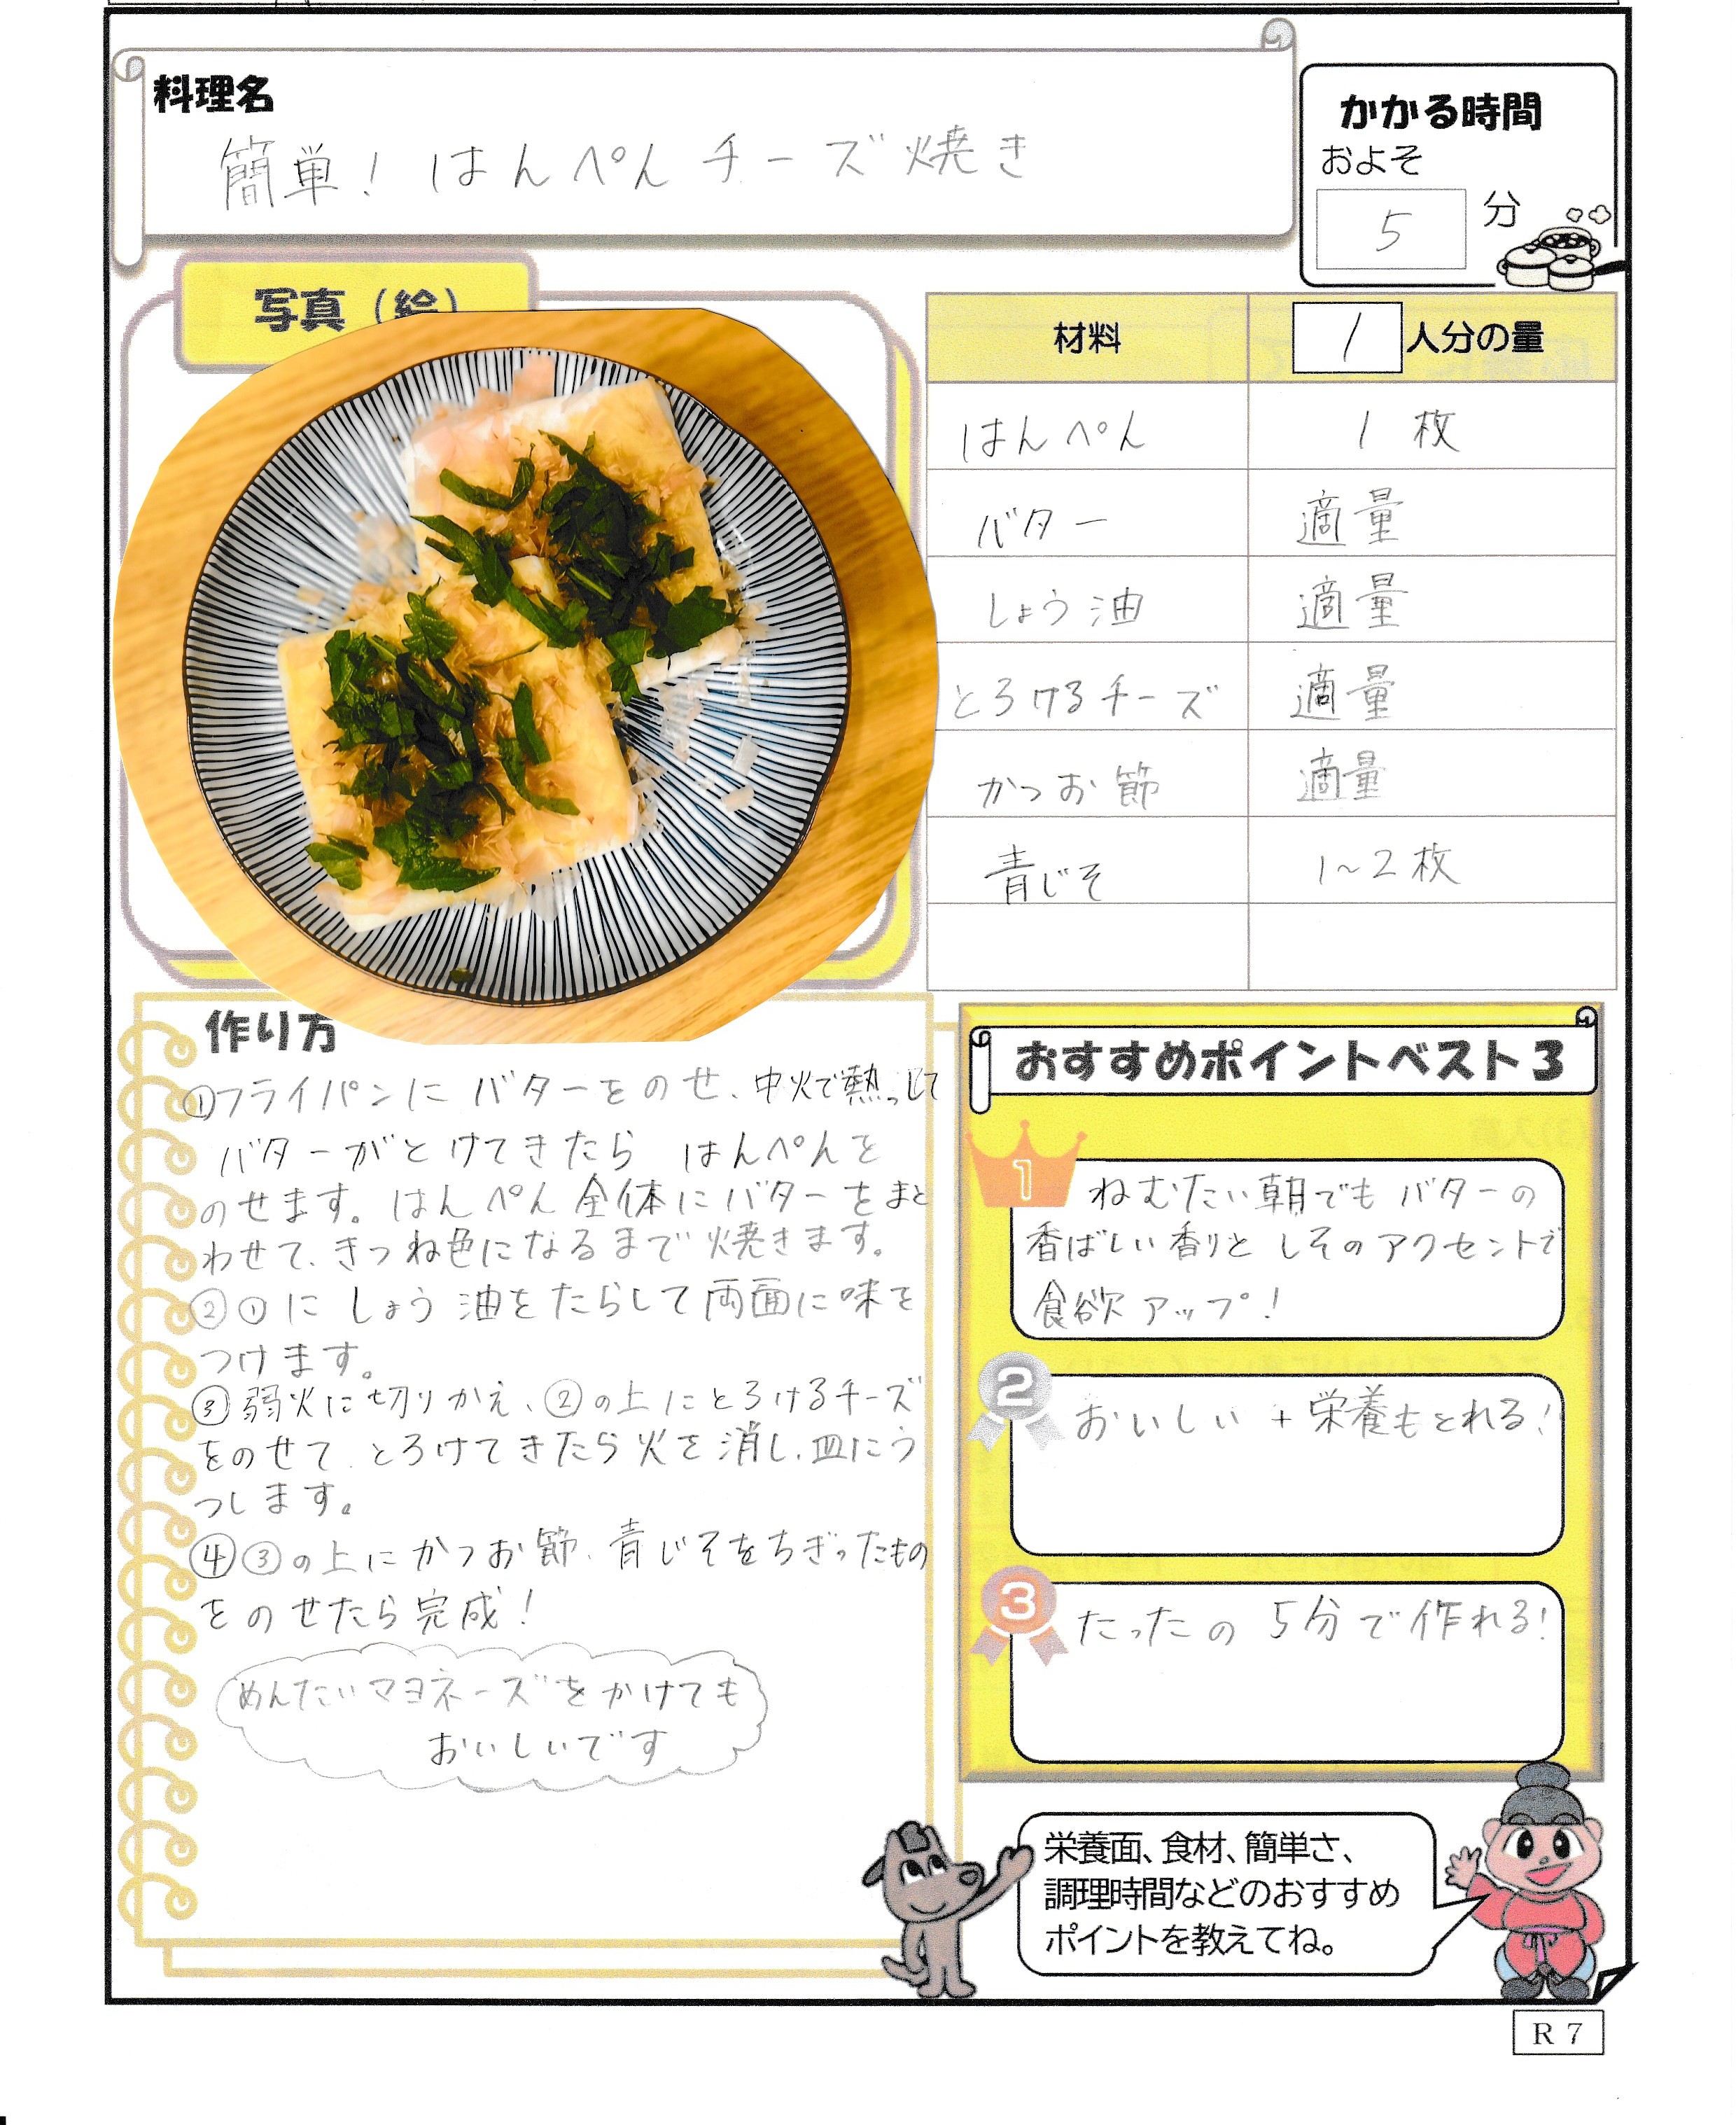 料理名
簡単！はんぺんチーズ焼き
かかる時間
およそ
5 分
写真（絵）
材料 1 人分の量
はんぺん 1枚
バター 適量
しょう油 適量
とろけるチーズ 適量
かつお節 適量
青じそ 1〜2枚
作り方
①フライパンにバターをのせ、中火で熱っして
バターがとけてきたら はんぺんを
のせます。はんぺん全体にバターをまと
わせて、きつね色になるまで焼きます。
②①にしょう油をたらして両面に味を
つけます。
③弱火に切りかえ、②の上にとろけるチーズ
をのせて、とろけてきたら火を消し、皿にう
つします。
④③の上にかつお節、青じそをちぎったもの
をのせたら完成！
めんたいマヨネーズをかけても
おいしいです
おすすめポイントベスト３
1 ねむたい朝でもバターの
香ばしい香りと しそのアクセントで
食欲アップ！
2 おいしい＋栄養もとれる！
3 たったの5分で作れる！
栄養面、食材、簡単さ、
調理時間などのおすすめ
ポイントを教えてね。
R７